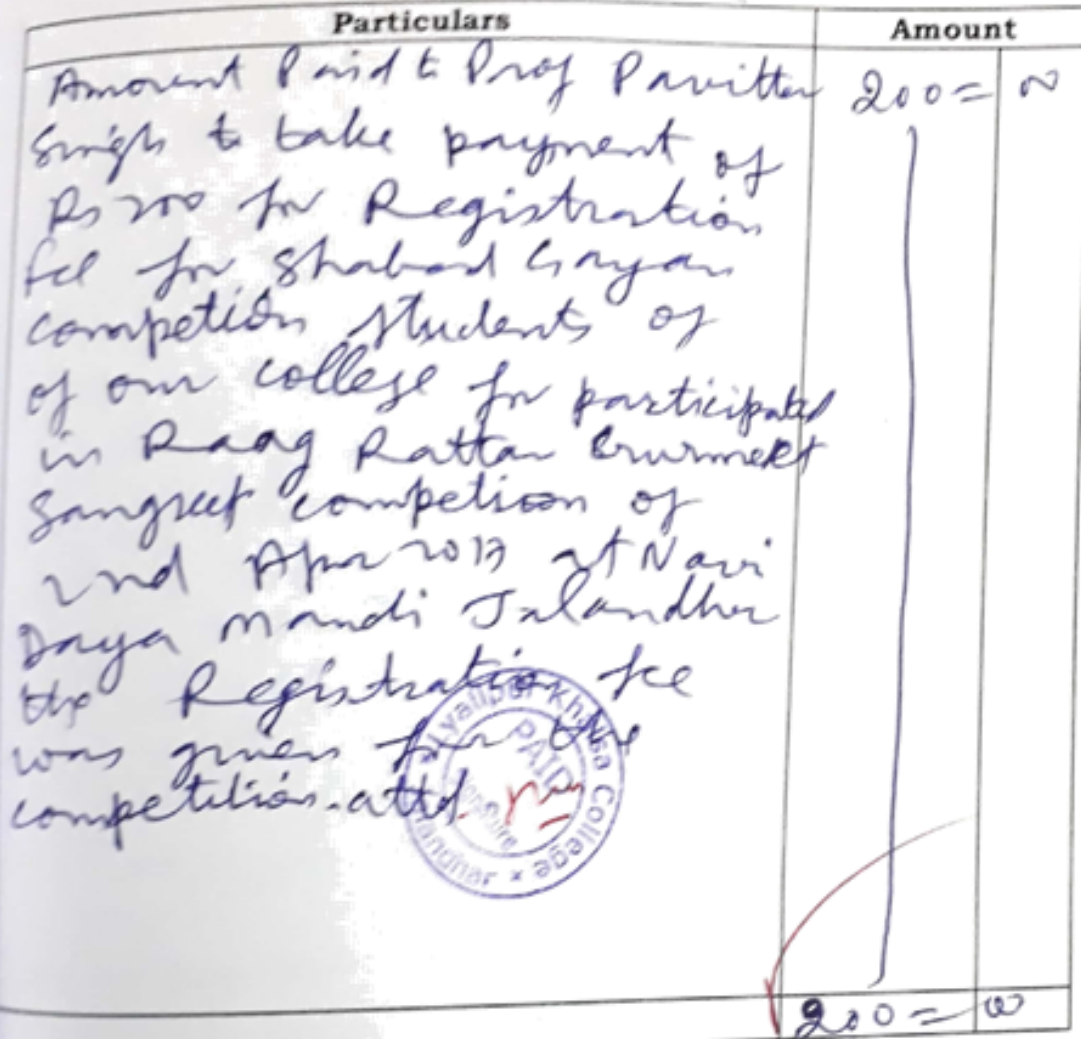 Particulars Amount
Amount Paid to Prof Pavitter 200=00
Singh to take payment of
Rs 200 for Registration
fee for Shabad Gayan
competion students of
of our college for participated
in Raag Rattan Gurmeet
Sangeet competion of
2nd Apr at Navi
Daya Mandi Jalandhar
the Registration fee
was given for the
competition. attd.
Lyallpur Khalsa College x Jalandhar
PAID
200=00